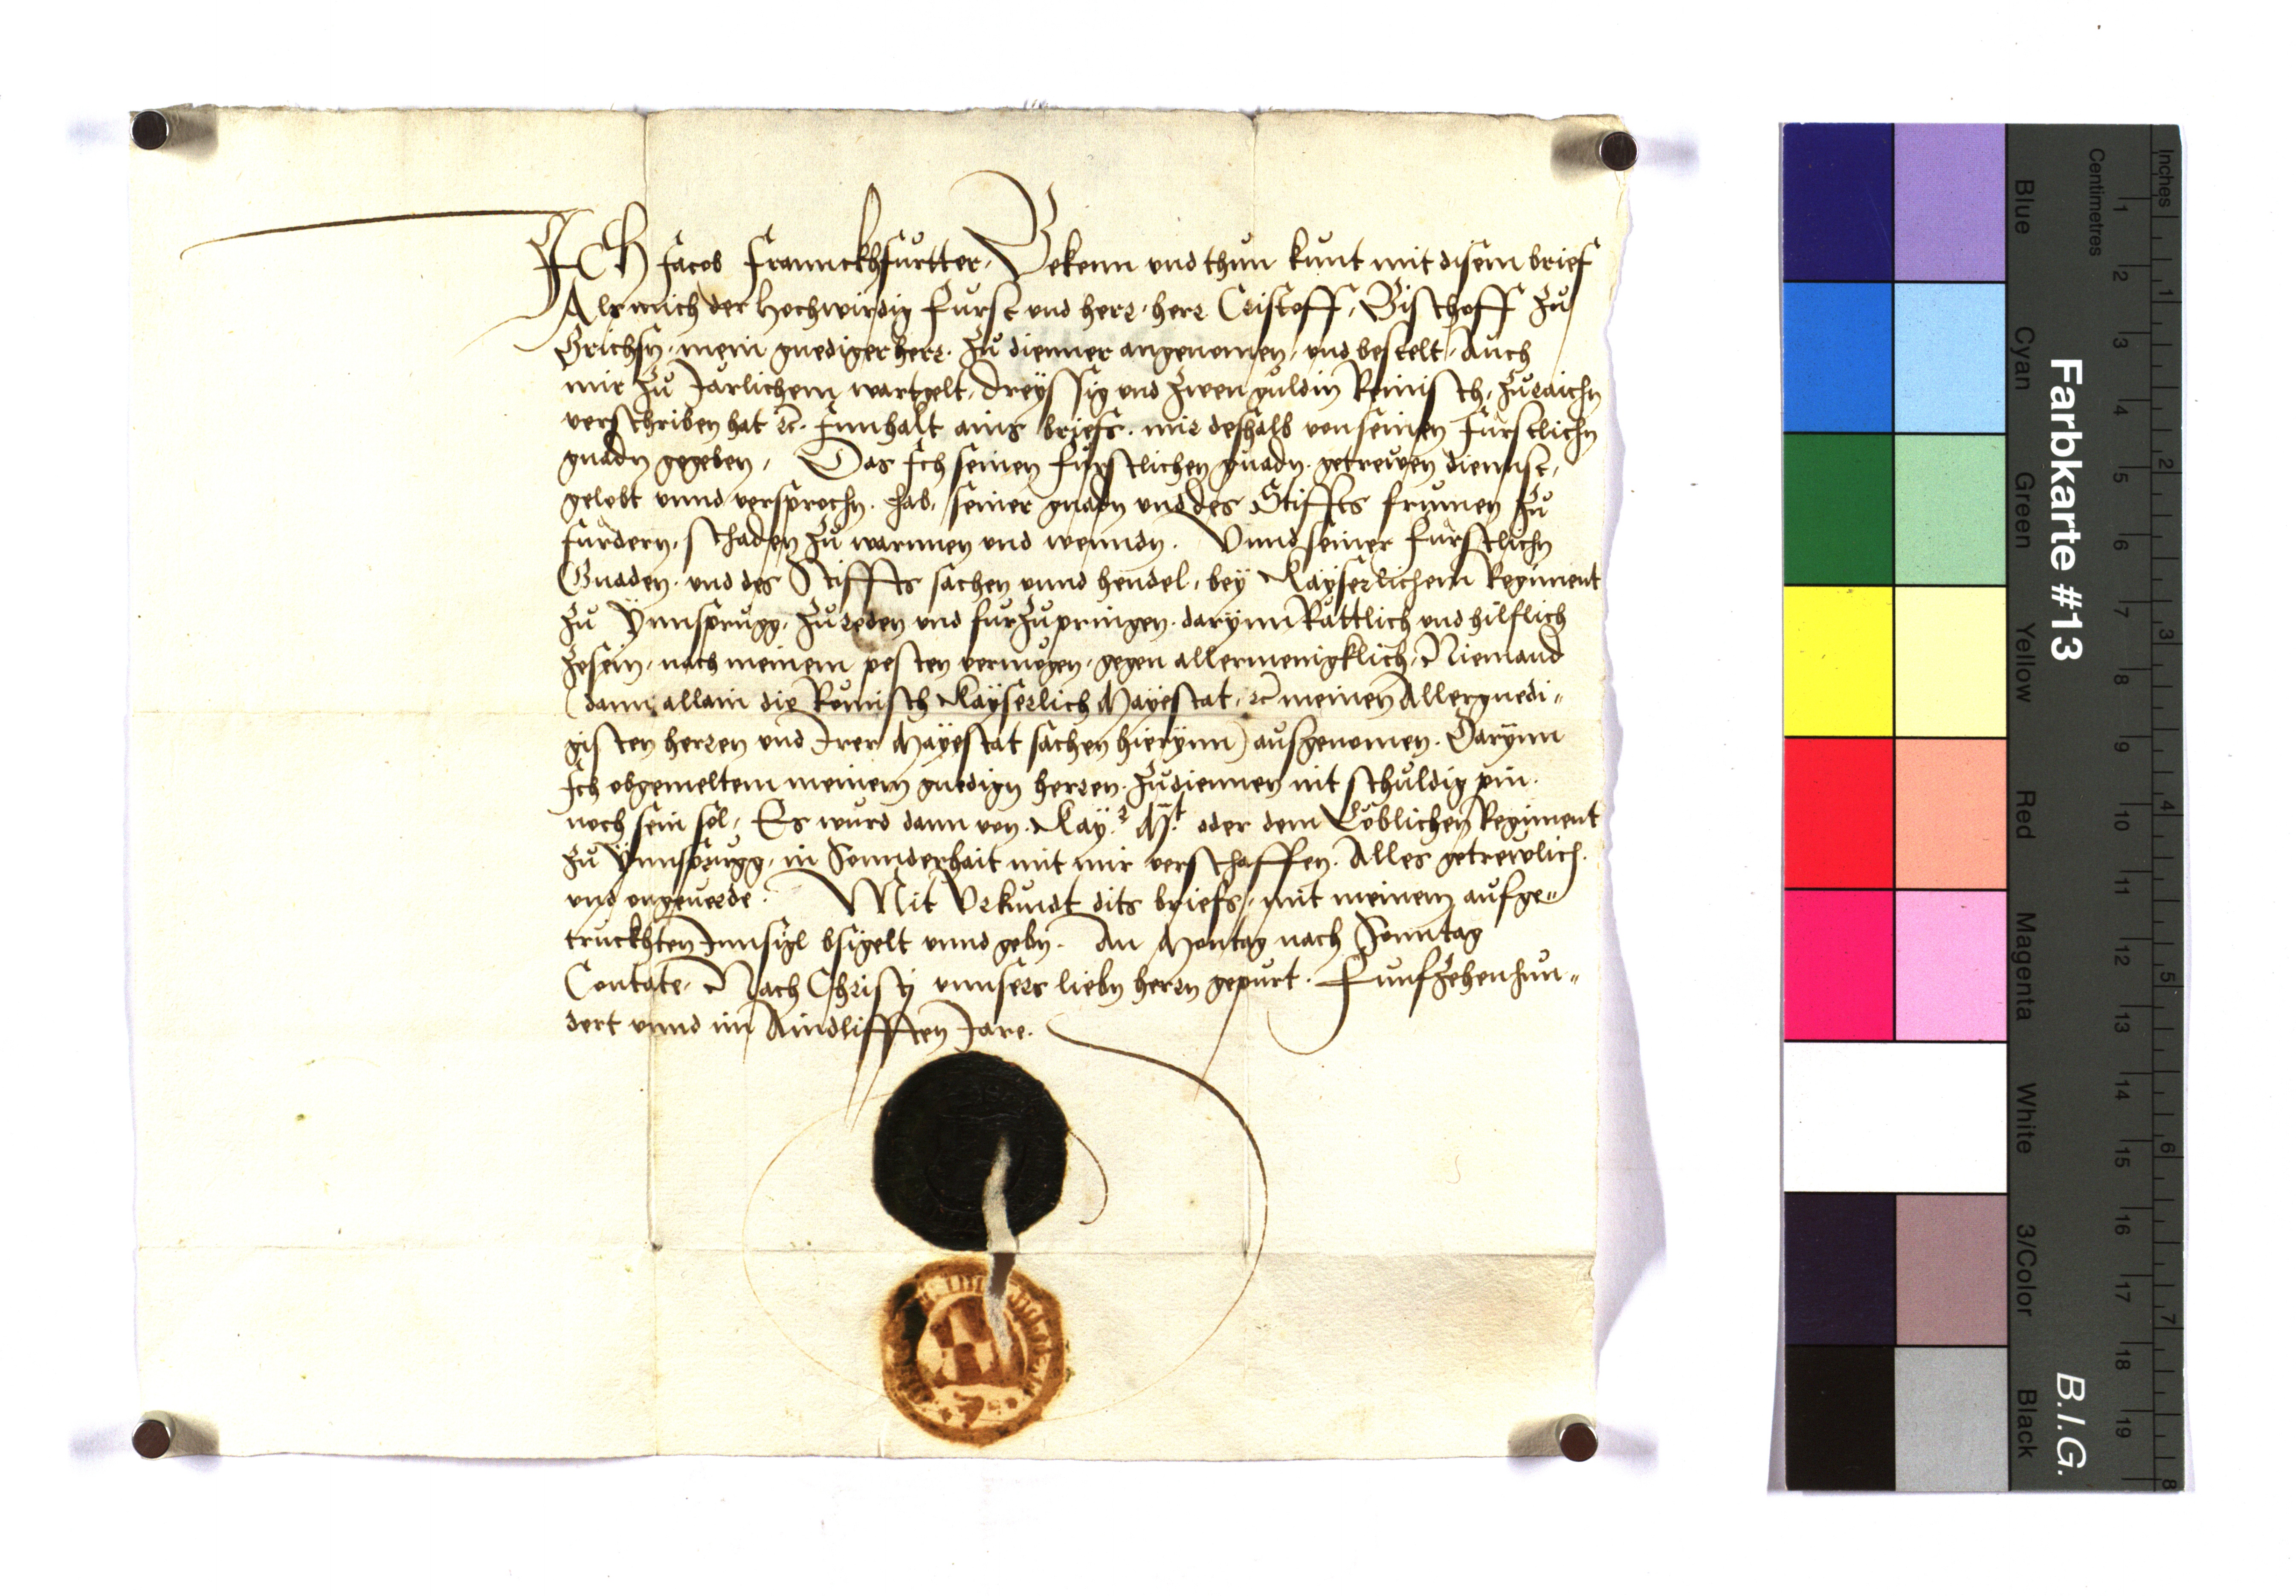 ICH Jacob Frannckhfurtter, Bekenn und thun kunt mit disem brief
Als mich der Hochwirdig Furst und herr, herr Cristoff, Bischoff zu
Brichsn, mein gnediger herr, zu dienner angenomen, und bestelt, Auch
mir zu Jarlichem wartgelt, dreyssig und zwen guldin Reinisch, zuraichn
verschriben hat rc. Innhalt ains briefs, mir deshalb von seinen Furstlichn
gnadn gegeben, Das Ich seinen Furstlichen gnadn, getrewen diennst,
gelobt unnd versprochn hab, seiner gnadn und des Stiffts frumen zu
furdern, schaden zu warnnen und wenndn. Unnd seiner furstlichn
Gnaden, und des Stiffts sachen unnd hendel, bey Kayserlichem Regiment
zu Ynnsprugg, zu reden und furzupringen, darynn Rattlich und hilflich
zesein, nach meinem pesten vermogen, gegen allermenigklich, Niemand
(dann allain die Romisch Kayserlich Mayestat, rc meinen Allergnedi„
gisten herren und Irer Mayestat sachen hierynn) ausgenomen. Darynn
Ich obgemeltem meinem gnedign herren, zudiennen nit schuldig pin.
noch sein sol, Es wurd dann von Kay.r Mt. oder dem Loblichen Regiment
zu Ynnsprugg, in Sonnderhait mit mir verschaffen. Alles getrewlich.
und ongeuerde. Mit Urkundt dits briefs, mit meinem aufge„
truckhten Innsigl bsigelt unnd gebn. An Montag nach Sonntag
Contate, Nach Christy unnsers liebn herrn gepurt. Funfzehenhun„
dert unnd im Aindlifften Jare.
Farbkarte #13
B.I.G.
Inches
Centimetres
1 2 3 4 5 6 7 8 9 10 11 12 13 14 15 16 17 18 19
1 2 3 4 5 6 7 8
Blue
Cyan
Green
Yellow
Red
Magenta
White
3/Color
Black